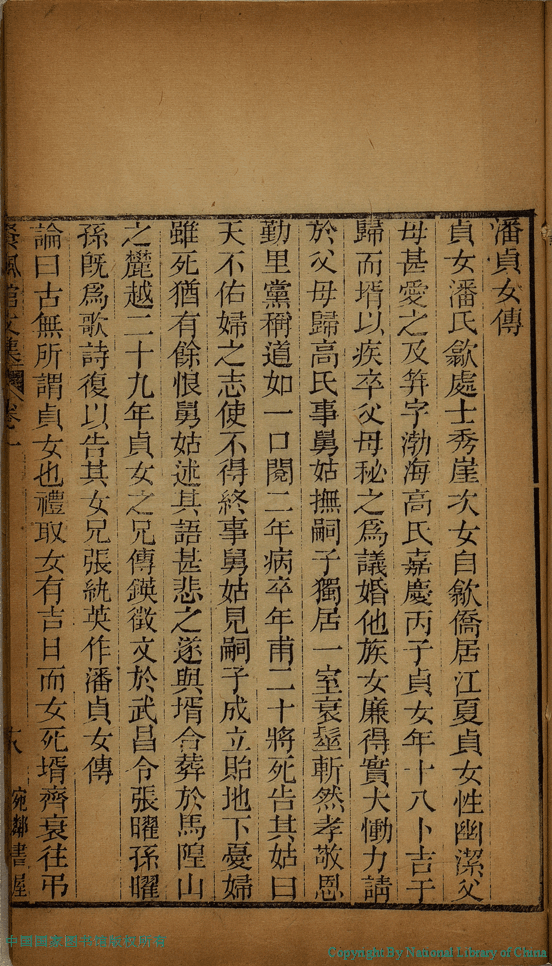 潘貞女傳
貞女潘氏歙處士秀崖次女自歙僑居江夏貞女性幽潔父
母甚愛之及笄字渤海高氏嘉慶丙子貞女年十八卜吉于
歸而壻以疾卒父母秘之爲議婚他族女廉得實大慟力請
於父母歸高氏事舅姑撫嗣子獨居一室衰髽斬然孝敬恩
勤里黨稱道如一口閱二年病卒年甫二十將死告其姑曰
天不佑婦之志使不得終事舅姑見嗣子成立貽地下憂婦
雖死猶有餘恨舅姑述其語甚悲之遂與壻合葬於馬隍山
之麓越二十九年貞女之兄傳鍈徵文於武昌令張曜孫曜
孫旣爲歌詩復以告其女兄張紈英作潘貞女傳
論曰古無所謂貞女也禮取女有吉日而女死壻齊衰往弔
餐楓館文集 卷一
宛鄰書屋
中国国家图书馆版权所有
Copyright By National Library of China